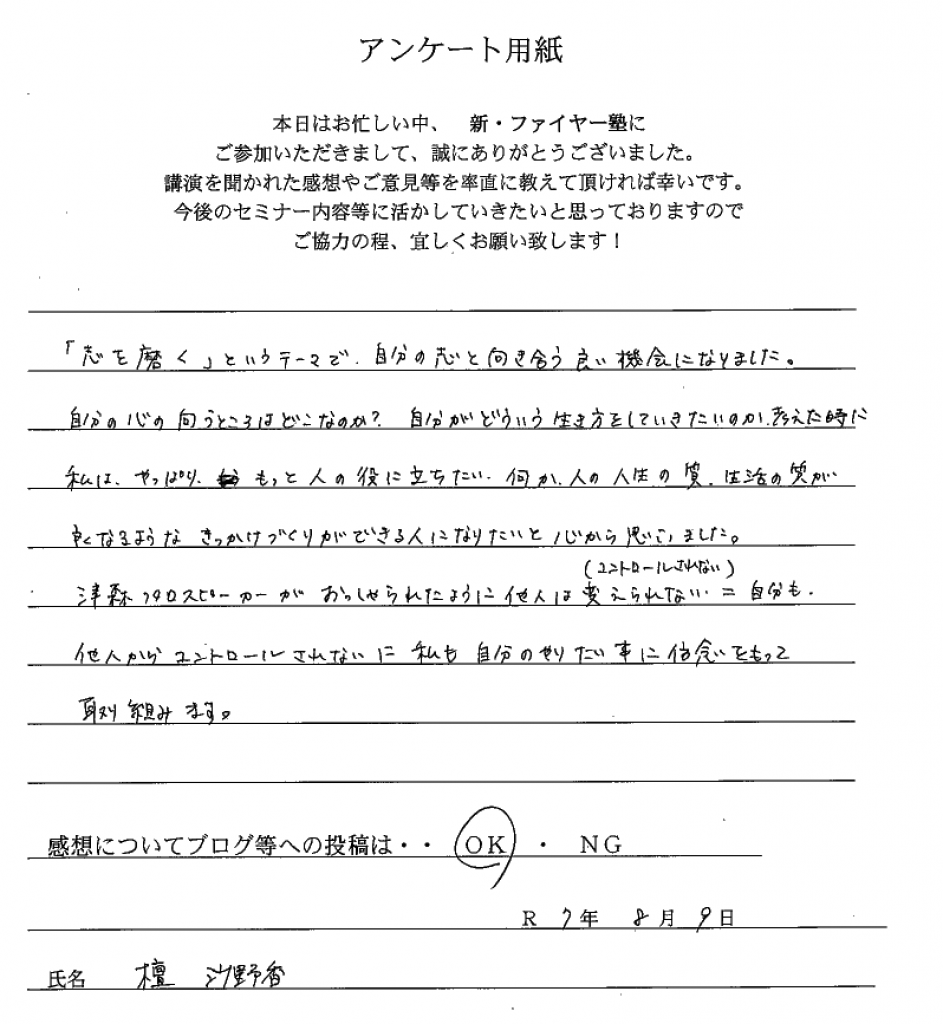 アンケート用紙
本日はお忙しい中、　新・ファイヤー塾に
ご参加いただきまして、誠にありがとうございました。
講演を聞かれた感想やご意見等を率直に教えて頂ければ幸いです。
今後のセミナー内容等に活かしていきたいと思っておりますので
ご協力の程、宜しくお願い致します！
「志を磨く」というテーマで、自分の志と向き合う良い機会になりました。
自分の心の向うところはどこなのか？ 自分がどういう生き方をしていきたいのか、考えた時に
私は、やっぱり、もっと人の役に立ちたい、何か、人の人生の質、生活の質が
良くなるような きっかけづくりができる人になりたいと心から思いました。
(コントロールされない)
津森 スピーカーが おっしゃられたように他人は変えられない = 自分も、
他人から コントロールされない に 私も 自分のやりたい事に信念をもって
取り組みます。
感想についてブログ等への投稿は・・ OK ・ NG
R 7年 8月 9日
氏名 檀 沙野香